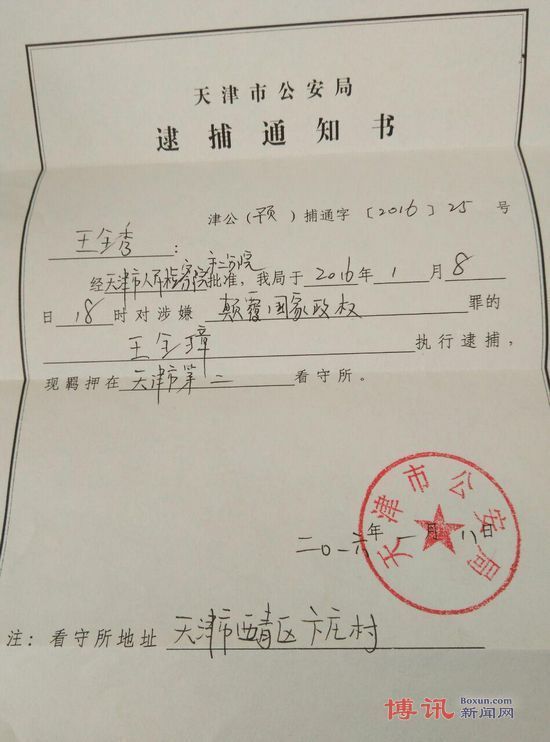 天津市公安局
逮捕通知书
津公（预）捕通字〔2016〕25号
王全秀：
经天津市人民检察院第二分院批准，我局于2016年1月8
日18时对涉嫌颠覆国家政权罪的
王全璋执行逮捕，
现羁押在天津市第二看守所。
天津市公安局
二〇一六年一月八日
注：看守所地址天津市西青区卞庄村
博讯 Boxun.com
新闻网